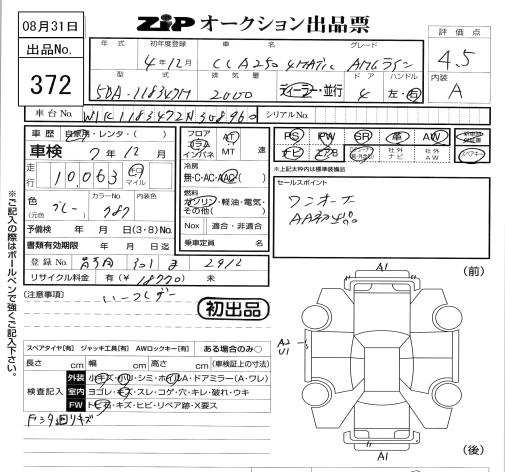 08月31日
出品No.
372
ZIP オークション出品票
評価点
4.5
内装
A
年式 初年度登録 車名 グレード
4年12月 CLA250 4MATIC AMGライン
型式 排気量 ドア ハンドル
5DA-118347M 2000 ディーラー・並行 4 左・右
車台No. W1K1183472N308960 シリアルNo.
車歴 自家用・レンタ・( )
車検 7年12月
走行 10,063 キロ マイル
色 (元色) グレー カラーNo. 787 内装色
予備検 年 月 日 (3・8)No.
書類有効期限 年 月 日迄
登録No. 301 2912
リサイクル料金 有(¥ 18770) 未
フロア コラム インパネ AT MT 速
冷房
無・C・AC・AAC
燃料
ガソリン・軽油・電気・その他( )
Nox 適合・非適合
乗車定員 名
PS PW SR 革 AW
ナビ エアB 社外ナビ 社外AW スペアキー
※上記太枠内は標準装備品
セールスポイント
ワンオーナー
(注意事項)
初出品
スペアタイヤ[有] ジャッキ工具[有] AWロックキー[有] ある場合のみ○
長さ cm 幅 cm 高さ cm (車検証上の寸法)
検査記入
外装 小キズ・ハリ・シミ・ホイルA・ドアミラー(A・ワレ)
室内 ヨゴレ・キズ・スレ・コゲ・穴・キレ・破れ・ウキ
FW トビ石・キズ・ヒビ・リペア跡・X要ス
※ご記入の際はボールペンで強くご記入下さい。
A1
(前)
A2
U1
A1
(後)